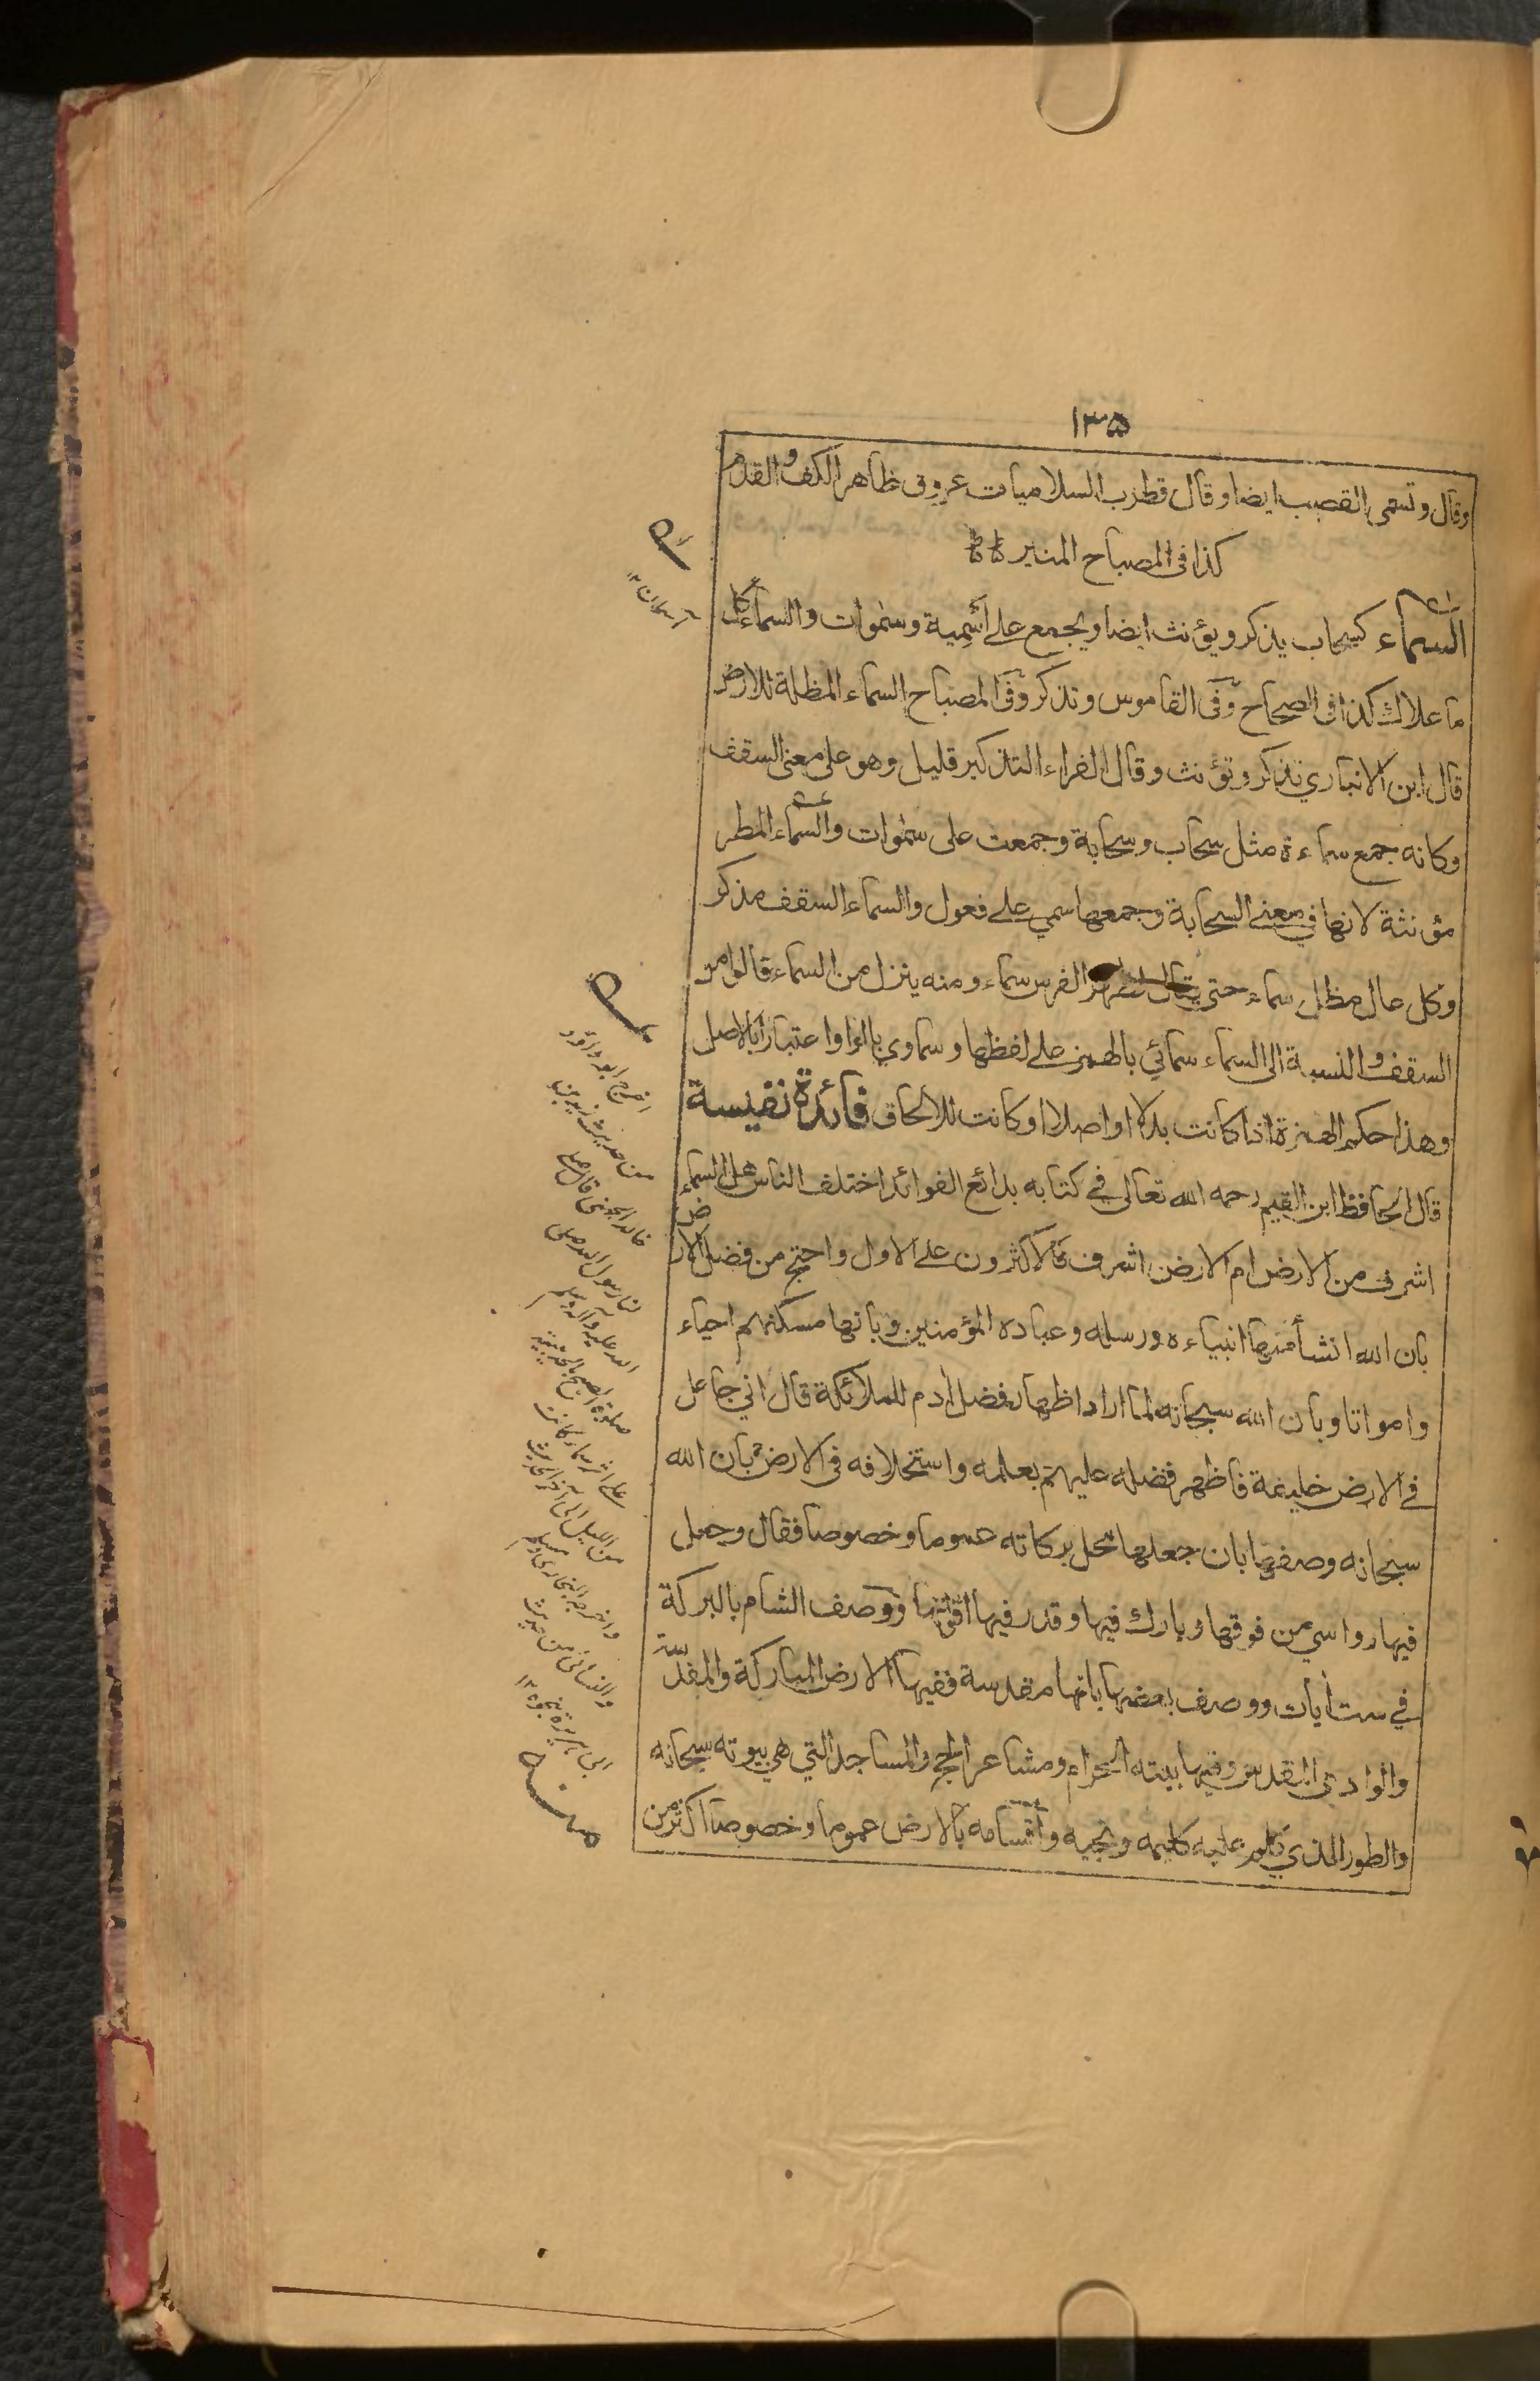 ١٣٥
وقال وتسمى القصب ايضا وقال قطرب السلاميات عروق ظاهر الكف والقدم
كذا فى المصباح المنير
السماء كسحاب يذكر ويؤنث ايضا ويجمع على اَسْمِية وسمٰوات والسماء كل
ما علاك كذا فى الصحاح وفى القاموس وتذكر وفى المصباح السماء المظلة للارض
قال ابن الانباري تذكر وتؤنث وقال الفراء التذكير قليل وهو على معنى السقف
وكانه جمع سماءة مثل سحاب وسحابة وجمعت على سمٰوات والسماء المطر
مؤنثة لانها في معنى السحابة وجمعها سمي على فعول والسماء السقف مذكر
وكل عال مظل سماء حتى يقال لظهر الفرس سماء ومنه ينزل من السماء قالوا من
السقف والنسبة الى السماء سمائي بالهمز على لفظها وسماوي بالواو اعتبارا بالاصل
وهذا حكم الهمزة اذا كانت بدلا او اصلا او كانت للالحاق فائدة نفيسة
قال الحافظ ابن القيم رحمه الله تعالى في كتابه بدائع الفوائد اختلف الناس هل السماء
اشرف من الارض ام الارض اشرف فالاكثرون على الاول واحتج من فضل الارض
بان الله انشأ منها انبياءه ورسله وعباده المؤمنين وبانها مسكنهم احياء
وامواتا وبان الله سبحانه لما اراد اظهار فضل ادم للملائكة قال اني جاعل
في الارض خليفة فاظهر فضله عليهم بعلمه واستخلافه فى الارض وبان الله
سبحانه وصفها بان جعلها محل بركاته عموما وخصوصا فقال وجعل
فيها رواسي من فوقها وبارك فيها وقدر فيها اقواتها ووصف الشام بالبركة
في ست اٰيات ووصف بعضها بانها مقدسة ففيها الارض المباركة والمقدسة
والوادى المقدس وفيها بيته الحرام ومشاعر الحج والمساجد التي هي بيوته سبحانه
والطور الذي كلم عليه كليمه ونجيه واقسامه بالارض عموما وخصوصا اكثر من
اخرج ابو داؤد
من حديث زيد بن
خالد الجهنى قال صلى
لنا رسول الله صلى
الله عليه وآله وسلم
صلوة الصبح بالحديبية
على اثر سماء كانت
من الليل الى آخر الحديث
واخرجه البخارى ومسلم
والنسائى من حديث
ابى هريرة نحوه ١٢
منه